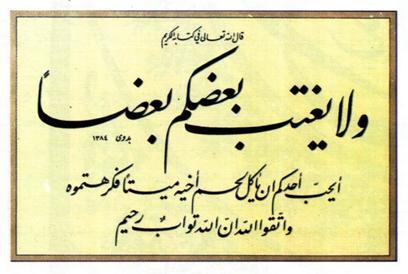 قال الله تعالى في كتابه الكريم
ولا يغتب بعضكم بعضاً
بدوي ١٣٨٤
أيحبّ أحدكم ان يأكل لحم أخيه ميتاً فكرهتموه
واتّقوا الله انّ الله توابٌ رحيم